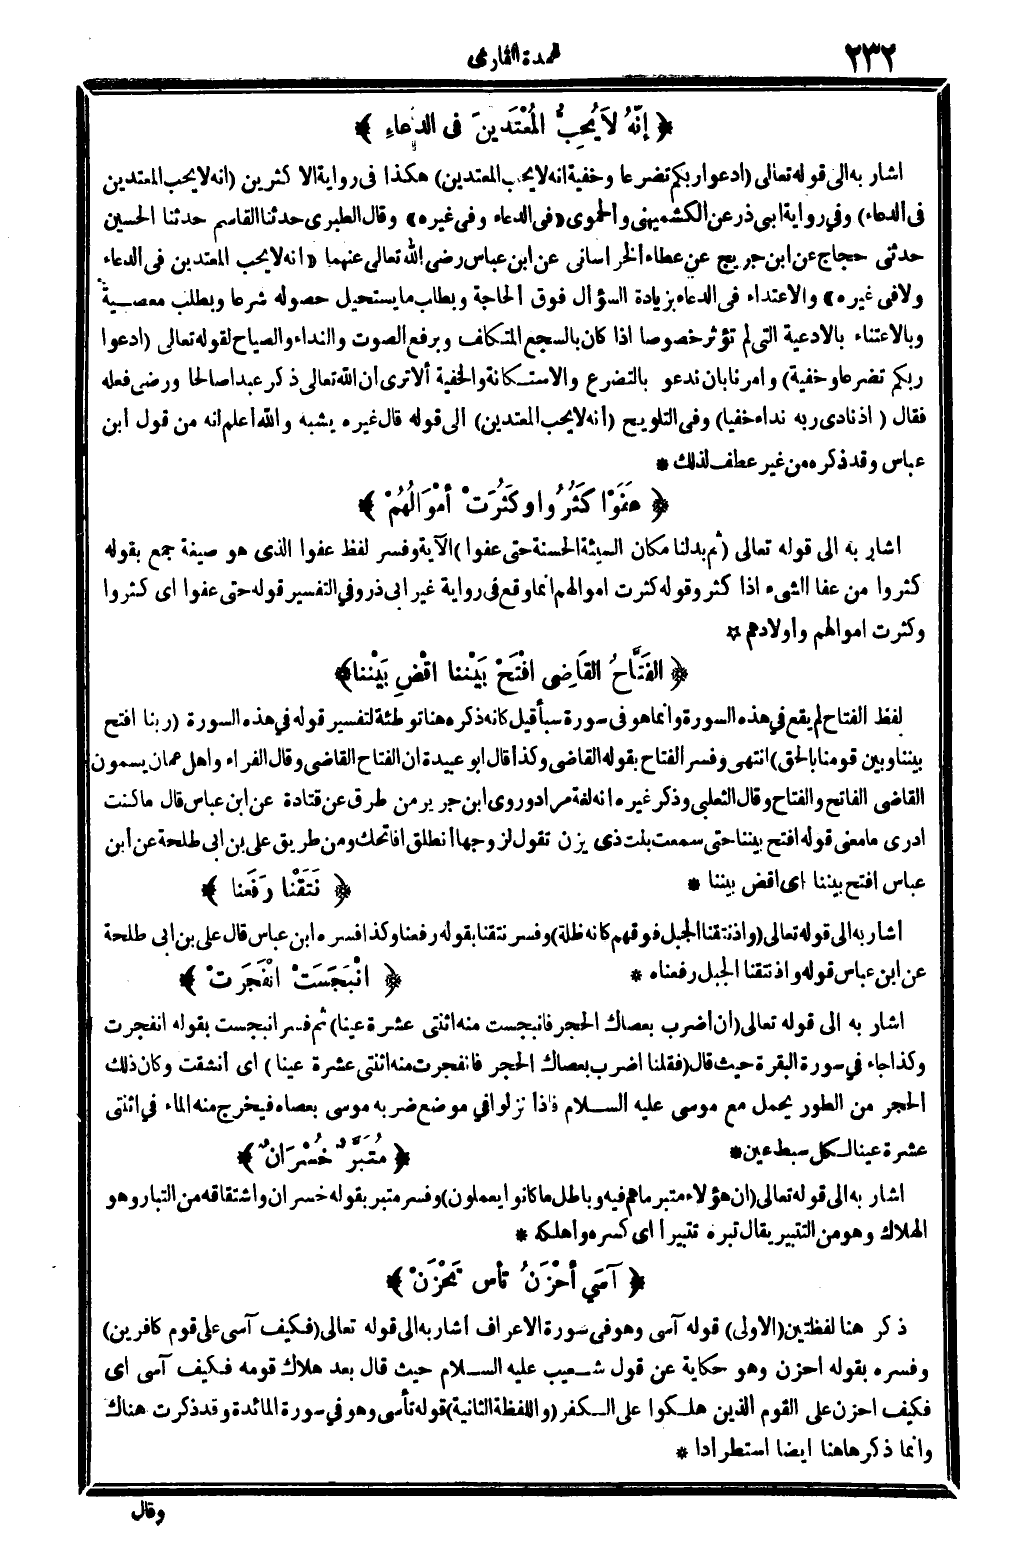 ٢٣٢
عمدة القارى
﴿ إِنَّهُ لاَ يُحِبُّ الْمُعْتَدِينَ فى الدُّعاءِ ﴾
اشار به الى قوله تعالى (ادعوا ربكم تضرعا وخفية انه لا يحب المعتدين) هكذا فى رواية الاكثرين (انه لا يحب المعتدين
فى الدعاء) وفي رواية ابى ذر عن الكشميهنى والحموى «فى الدعاء وفى غيره» وقال الطبرى حدثنا القاسم حدثنا الحسين
حدثنى حجاج عن ابن جريج عن عطاء الخراسانى عن ابن عباس رضى الله تعالى عنهما «انه لا يحب المعتدين فى الدعاء
ولا فى غيره» والاعتداء فى الدعاء بزيادة السؤال فوق الحاجة وبطلب ما يستحيل حصوله شرعا وبطلب معصية
وبالاعتناء بالادعية التى لم تؤثر خصوصا اذا كان بالسجع المتكلف وبرفع الصوت والنداء والصياح لقوله تعالى (ادعوا
ربكم تضرعا وخفية) وامرنا بان ندعو بالتضرع والاستكانة والخفية ألا ترى ان الله تعالى ذكر عبدا صالحا ورضى فعله
فقال (اذ نادى ربه نداء خفيا) وفى التلويح (انه لا يحب المعتدين) الى قوله قال غيره يشبه والله أعلم انه من قول ابن
عباس وقد ذكره من غير عطف لذلك *
﴿ عَفَوْا كَثُرُوا وكَثُرَتْ أمْوَالُهُمْ ﴾
اشار به الى قوله تعالى (ثم بدلنا مكان السيئة الحسنة حتى عفوا) الآية وفسر لفظ عفوا الذى هو صيغة جمع بقوله
كثروا من عفا الشىء اذا كثر وقوله كثرت اموالهم انما وقع فى رواية غير ابى ذر وفي التفسير قوله حتى عفوا اى كثروا
وكثرت اموالهم وأولادهم ☆
﴿ الفَتَّاحُ القَاضِى افْتَحْ بَيْنَنا اقْضِ بَيْنَنا ﴾
لفظ الفتاح لم يقع في هذه السورة وانما هو فى سورة سبأ قيل كانه ذكره هنا توطئة لتفسير قوله في هذه السورة (ربنا افتح
بيننا وبين قومنا بالحق) انتهى وفسر الفتاح بقوله القاضى وكذا قال ابو عبيدة ان الفتاح القاضى وقال الفراء واهل عمان يسمون
القاضى الفاتح والفتاح وقال الثعلبى وذكر غيره انه لغة مراد وروى ابن جرير من طرق عن قتادة عن ابن عباس قال ما كنت
ادرى ما معنى قوله افتح بيننا حتى سمعت بنت ذى يزن تقول لزوجها أنطلق افاتحك ومن طريق على بن ابى طلحة عن أبن
عباس افتح بيننا اى اقض بيننا *
﴿ نَتَقْنا رَفَعنا ﴾
أشار به الى قوله تعالى (واذ نتقنا الجبل فوقهم كانه ظلة) وفسر نتقنا بقوله رفعنا وكذا فسره ابن عباس قال على بن ابى طلحة
عن ابن عباس قوله واذ نتقنا الجبل رفعناه *
﴿ انْبَجَسَتْ انْفَجَرَتْ ﴾
اشار به الى قوله تعالى (ان أضرب بعصاك الحجر فانبجست منه اثنتى عشرة عينا) ثم فسر انبجست بقوله انفجرت
وكذا جاء في سورة البقرة حيث قال (فقلنا اضرب بعصاك الحجر فانفجرت منه اثنتى عشرة عينا) اى أنشقت وكان ذلك
الحجر من الطور يحمل مع موسى عليه السلام فاذا نزلوا في موضع ضربه موسى بعصاه فيخرج منه الماء في اثنتى
عشرة عينا لكل سبط عين *
﴿ مُتَبَّرٌ خُسْرَانٌ ﴾
اشار به الى قوله تعالى (ان هؤلاء متبر ما هم فيه وباطل ما كانوا يعملون) وفسر متبر بقوله خسران واشتقاقه من التبار وهو
الهلاك وهو من التتبير يقال تبره تتبيرا اى كسره وأهلكه *
﴿ آسَي أحْزَنُ تأس تَحْزَنْ ﴾
ذكر هنا لفظتين (الاولى) قوله آسى وهو فى سورة الاعراف أشار به الى قوله تعالى (فكيف آسى على قوم كافرين)
وفسره بقوله احزن وهو حكاية عن قول شعيب عليه السلام حيث قال بعد هلاك قومه فكيف آسى اى
فكيف احزن على القوم الذين هلكوا على الكفر (واللفظة الثانية) قوله تأسى وهو في سورة المائدة وقد ذكرت هناك
وانما ذكرها هنا ايضا استطرادا *
وقال